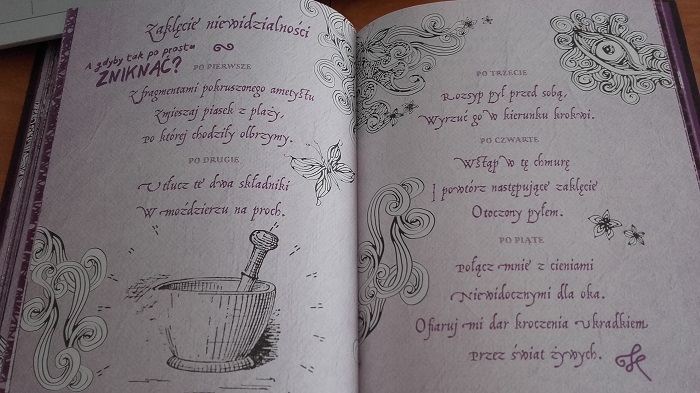 Zaklęcie niewidzialności
A gdyby tak po prostu
ZNIKNĄĆ?
PO PIERWSZE
Z fragmentami pokruszonego ametystu
Zmieszaj piasek z plaży,
Po której chodziły olbrzymy.
PO DRUGIE
Utłucz te dwa składniki
W moździerzu na proch.
PO TRZECIE
Rozsyp pył przed sobą,
Wyrzuć go w kierunku krokwi.
PO CZWARTE
Wstąp w tę chmurę
I powtórz następujące zaklęcie
Otoczony pyłem.
PO PIĄTE
Połącz mnie z cieniami
Niewidocznymi dla oka.
Ofiaruj mi dar kroczenia ukradkiem
Przez świat żywych.